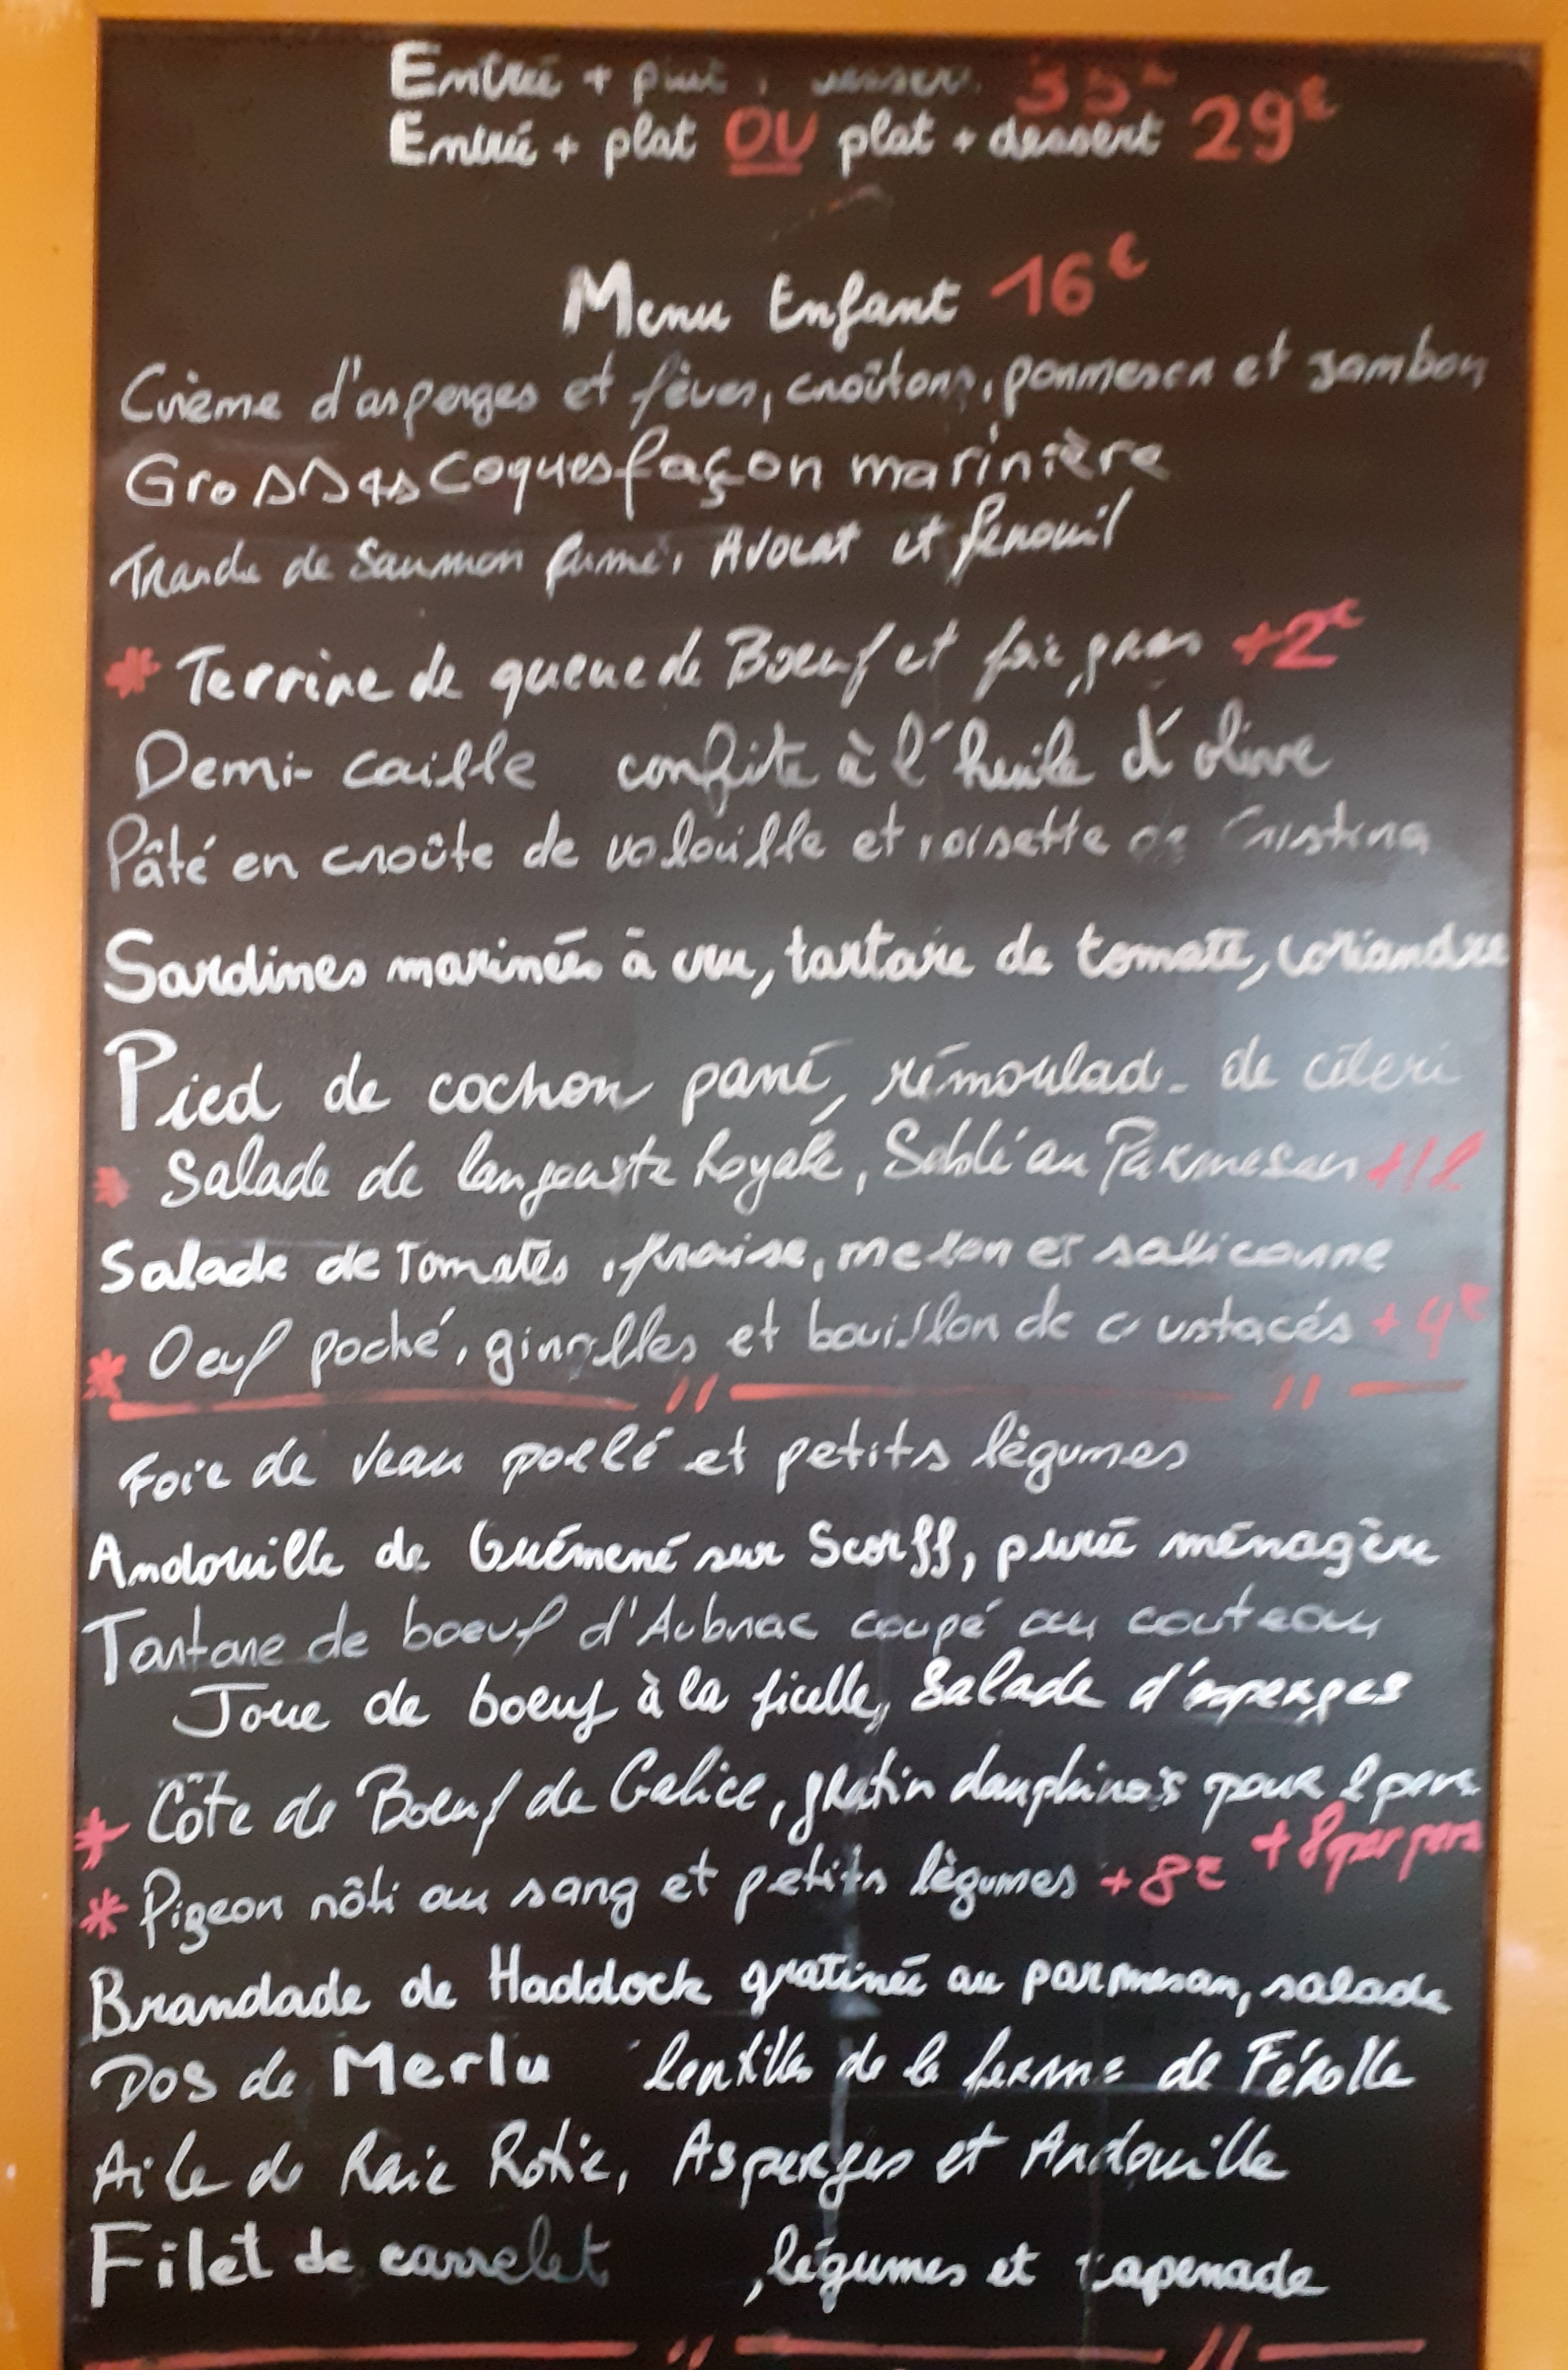 Entrée + plat + dessert 35€
Entrée + plat OU plat + dessert 29€
Menu Enfant 16€
Crème d'asperges et fèves, croûtons, parmesan et jambon
Grosses Coques façon marinière
Tranche de Saumon fumé, Avocat et fenouil
* Terrine de queue de Boeuf et foie gras +2€
Demi-caille confite à l'huile d'olive
Pâté en croûte de volaille et noisette de Cristina
Sardines marinées à cru, tartare de tomate, coriandre
Pied de cochon pané, rémoulade de céleri
* Salade de langouste Royale, Sablé au Parmesan +12
Salade de Tomates, fraise, melon et salicorne
* Oeuf poché, girolles et bouillon de crustacés +4€
Foie de veau poêlé et petits légumes
Andouille de Guémené sur Scorff, purée ménagère
Tartare de boeuf d'Aubrac coupé au couteau
Joue de boeuf à la ficelle, Salade d'asperges
* Côte de Boeuf de Galice, gratin dauphinois pour 2 pers
+8 per pers
* Pigeon rôti au sang et petits légumes +8€
Brandade de Haddock gratinée au parmesan, salade
Dos de Merlu lentilles de la ferme de Férolle
Aile de Raie Rotie, Asperges et Andouille
Filet de carrelet , légumes et tapenade